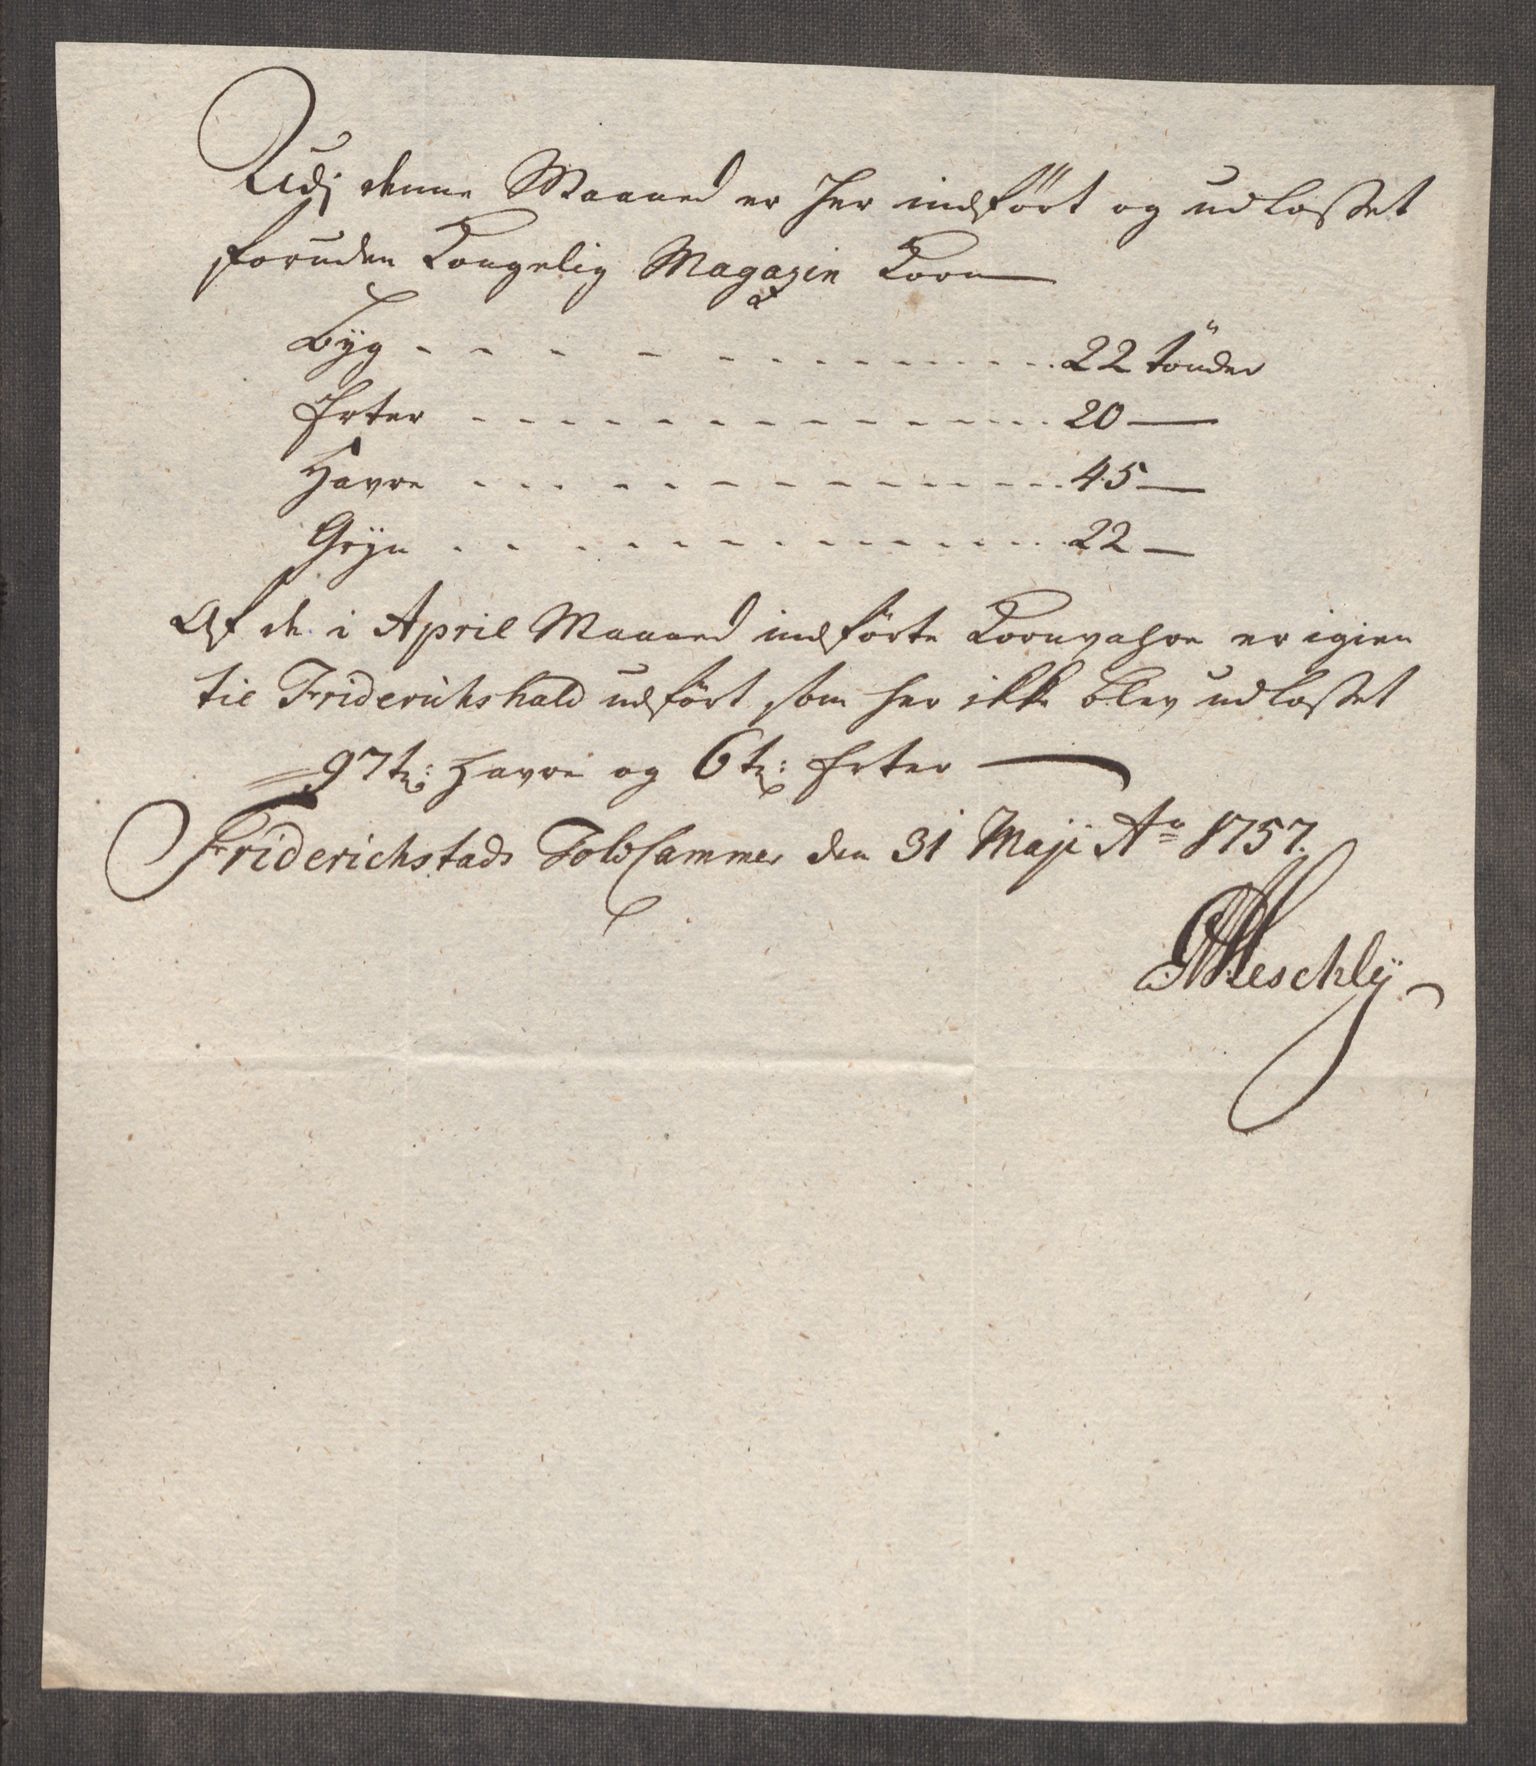 Udj denne Maaned er her indført og udlosset
foruden Kongelig Magazin Korn
Byg - - - - - - - - - - - - 22 tönder
Erter - - - - - - - - - - - - 20 —
Havre - - - - - - - - - - - - 45 —
Gryn - - - - - - - - - - - - 22 —
Af de i April Maaned indførte Kornvahre er igien
til Friderichshald udført som her ikke blev udlosset
97 tr: Havre og 6 tr: Erter —
Friderichstads Told Cammer den 31 Maji Ao 1757.